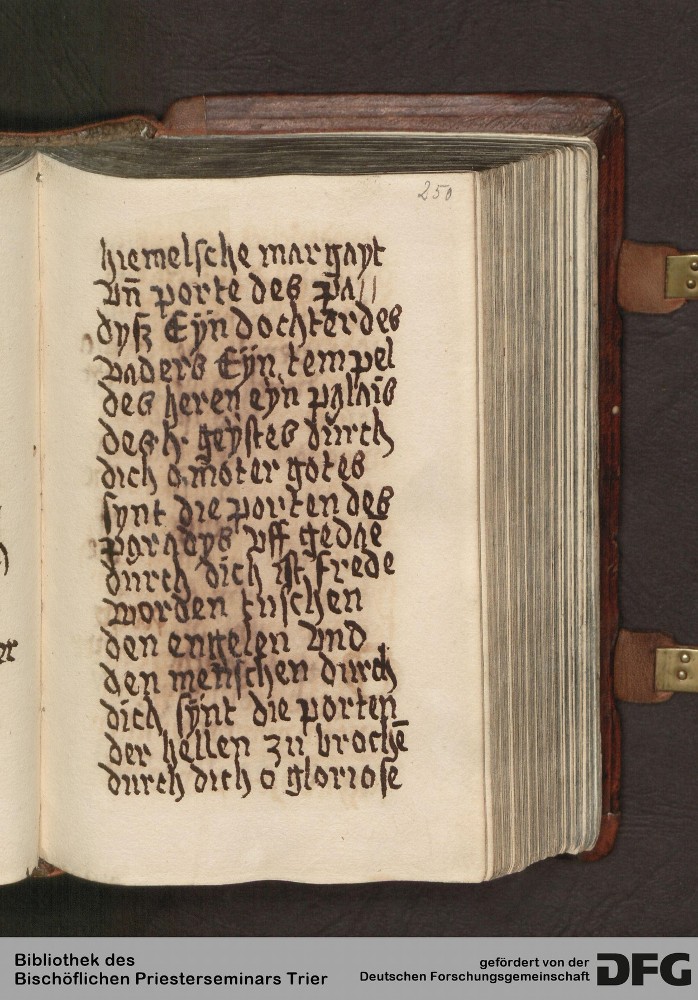 250
hiemelsche margayt
vn̄ porte des pa//
dyß Eÿn dochter des
vaders Eÿn tempel
des heren eÿn palais
des h· geÿstes durch
dich o moter gotes
synt die porten des
paradys vff gedae
durch dich ist frede
worden tuschen
den engelen vnd
den menschen durch
dich sÿnt die porten
der hellen zu brochē
durch dich o gloriose
Bibliothek des
Bischöflichen Priesterseminars Trier
gefördert von der
Deutschen Forschungsgemeinschaft
DFG